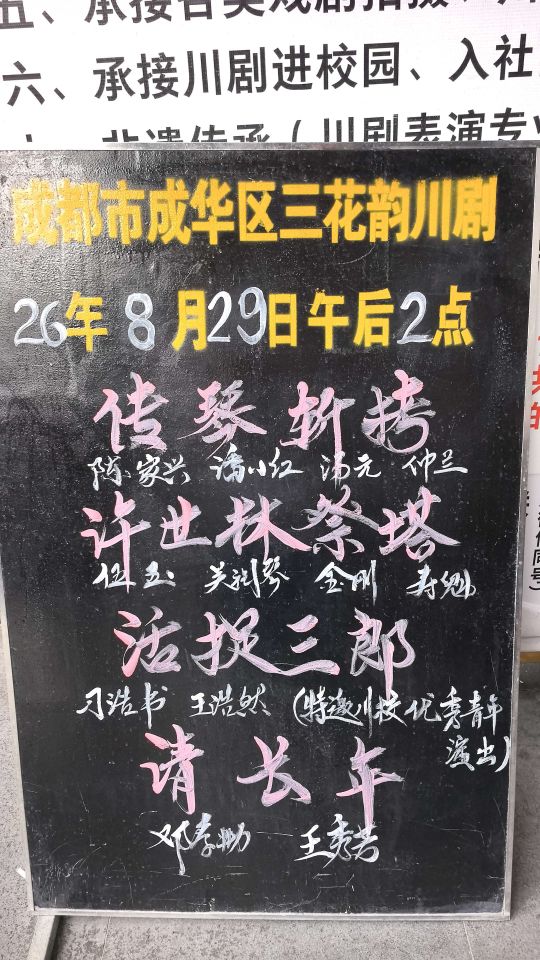 五、承接各类戏剧拍摄、
六、承接川剧进校园、入社
非遗传承(川剧表演专业
成都市成华区三花韵川剧
26年8月29日午后2点
传琴斩拷
陈家兴 潘小红 汤元 仲兰
许世林祭塔
伍玉 金刚 寿勉
活捉三郎
刁浩书 王浩然 (特邀川校优秀青年
演出)
请长年
邓孝勤 王秀芳